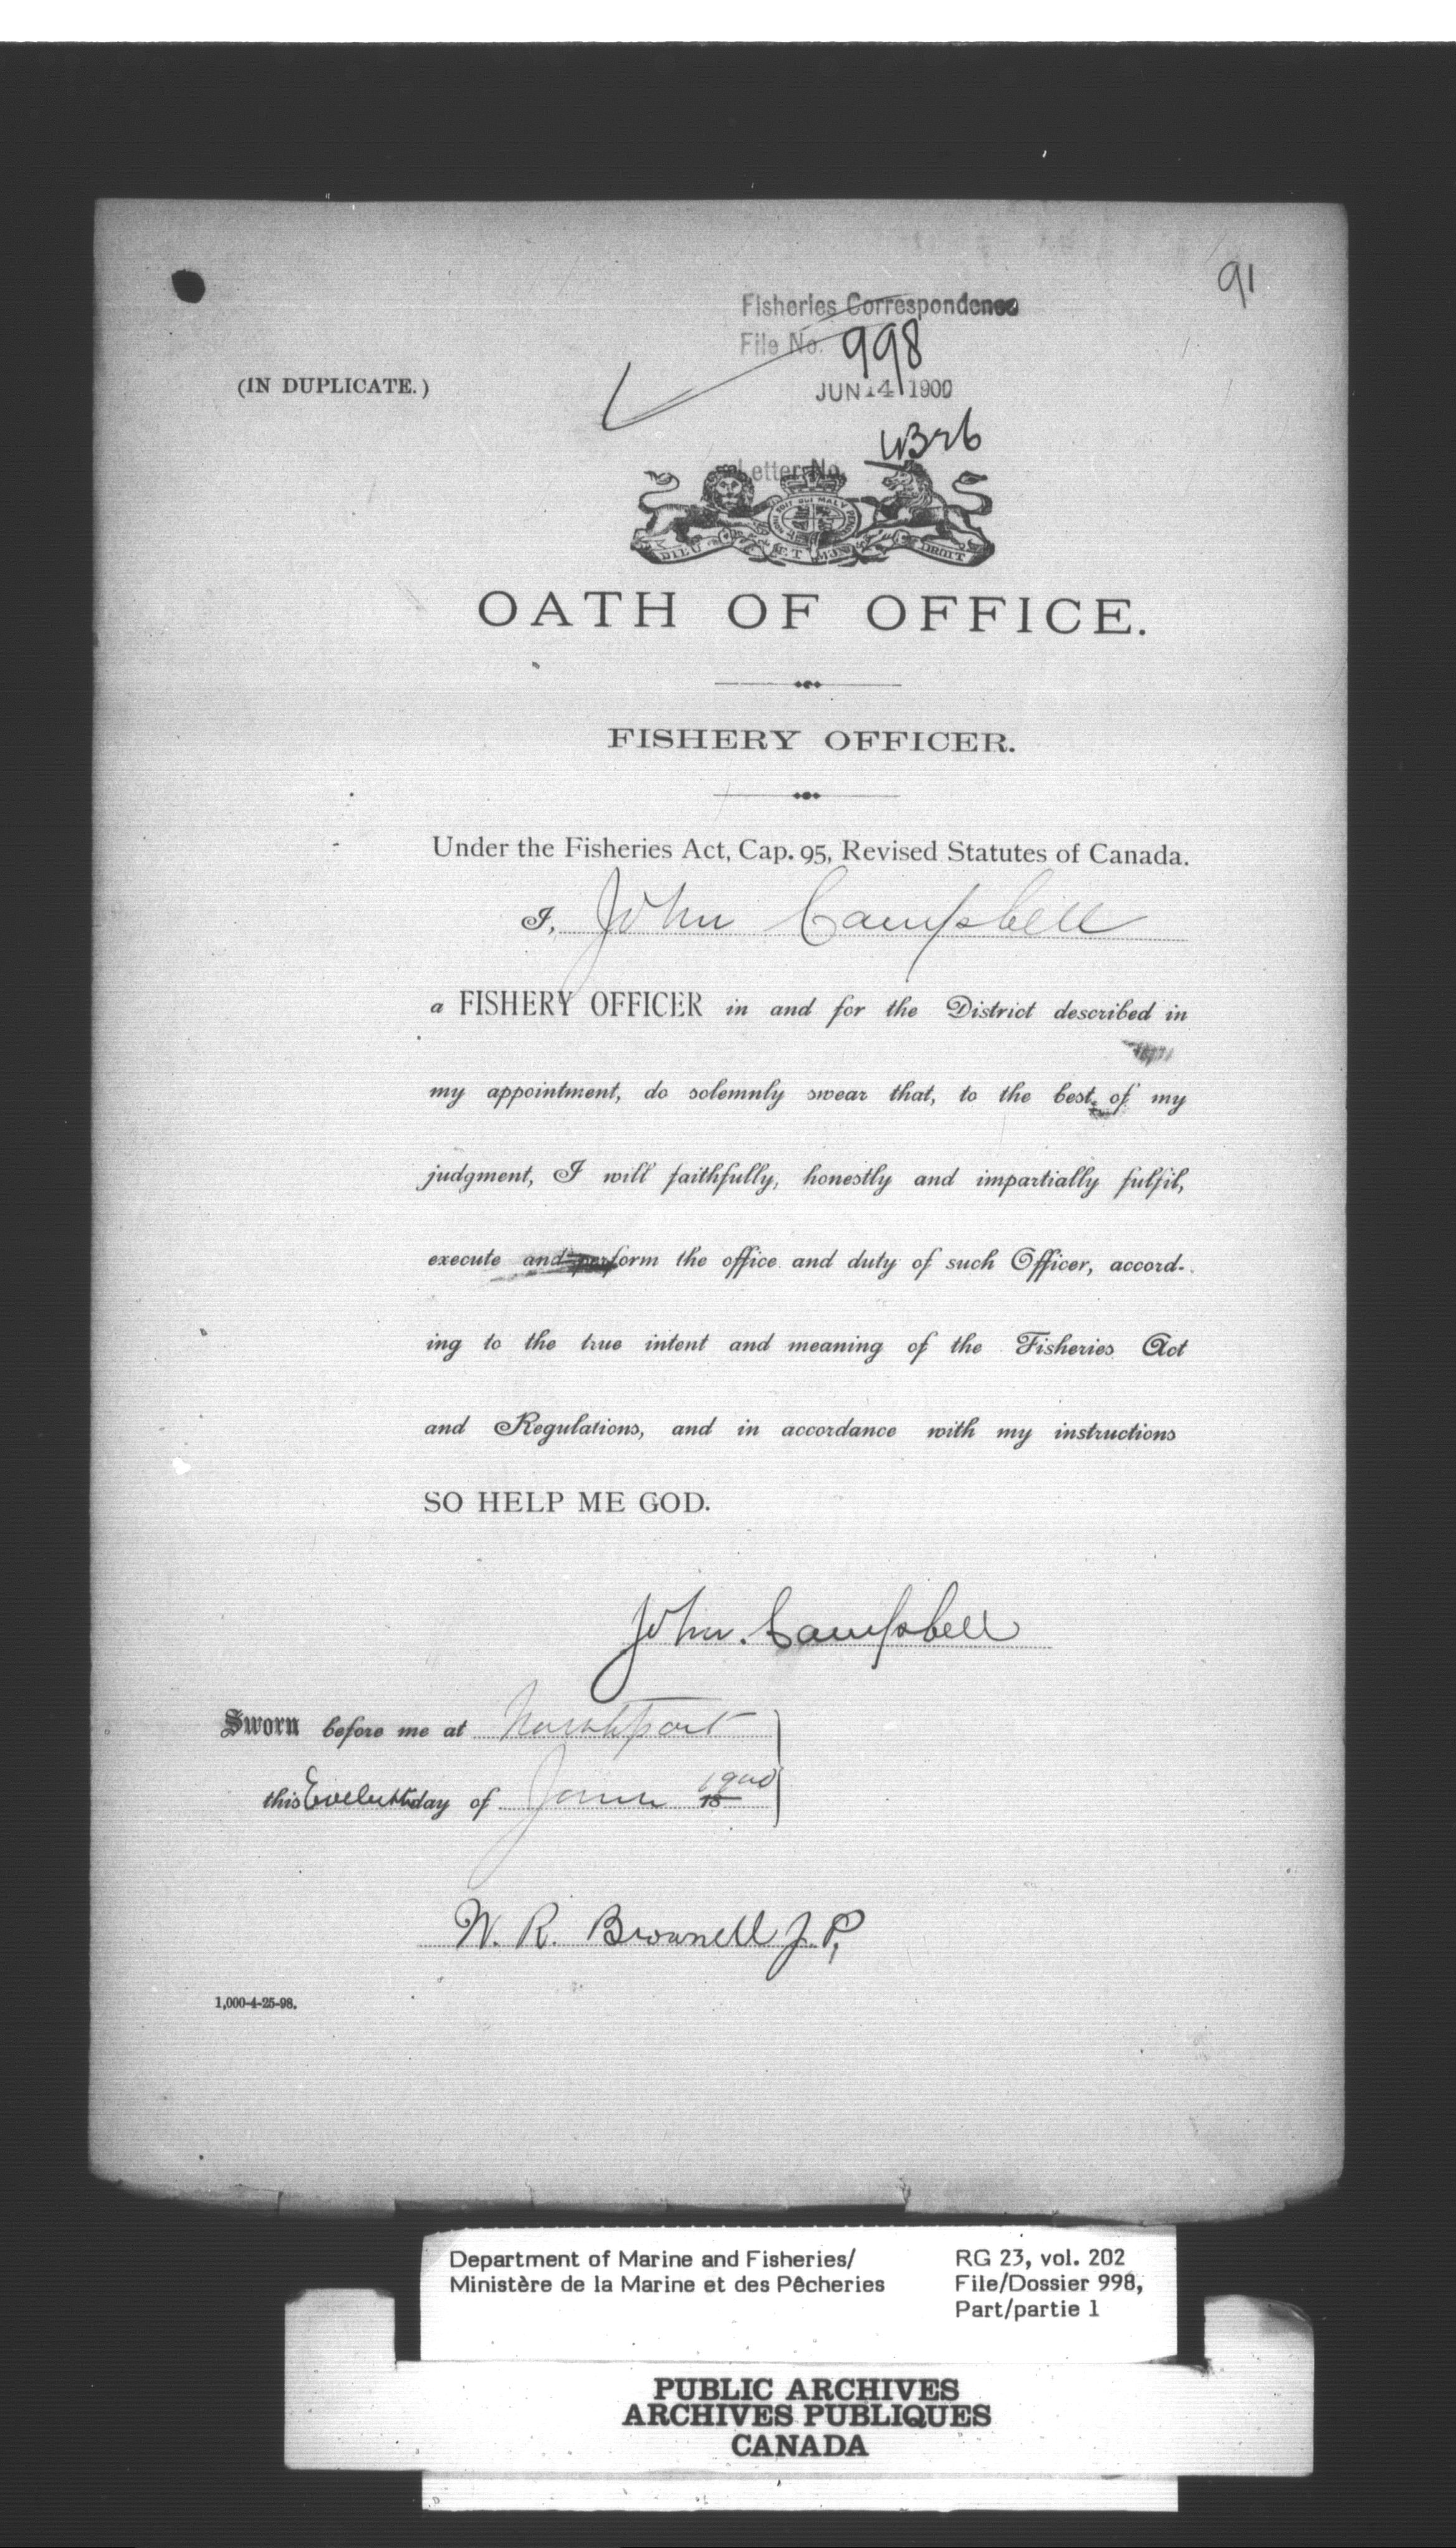 91
Fisheries Correspondence
File No. 998
(IN DUPLICATE.)
JUN 14 1900
Letter No.
DIEU ET MON DROIT
OATH OF OFFICE.
FISHERY OFFICER.
Under the Fisheries Act, Cap. 95, Revised Statutes of Canada.
I, John Campbell
a FISHERY OFFICER in and for the District described in
my appointment, do solemnly swear that, to the best of my
judgment, I will faithfully, honestly and impartially fulfil,
execute and perform the office and duty of such Officer, accord-
ing to the true intent and meaning of the Fisheries Act
and Regulations, and in accordance with my instructions
SO HELP ME GOD.
John Campbell
Sworn before me at Northport
this day of 1900
W. R. Brownell J. P.
1,000-4-25-98.
Department of Marine and Fisheries/
Ministère de la Marine et des Pêcheries
RG 23, vol. 202
File/Dossier 998,
Part/partie 1
PUBLIC ARCHIVES
ARCHIVES PUBLIQUES
CANADA